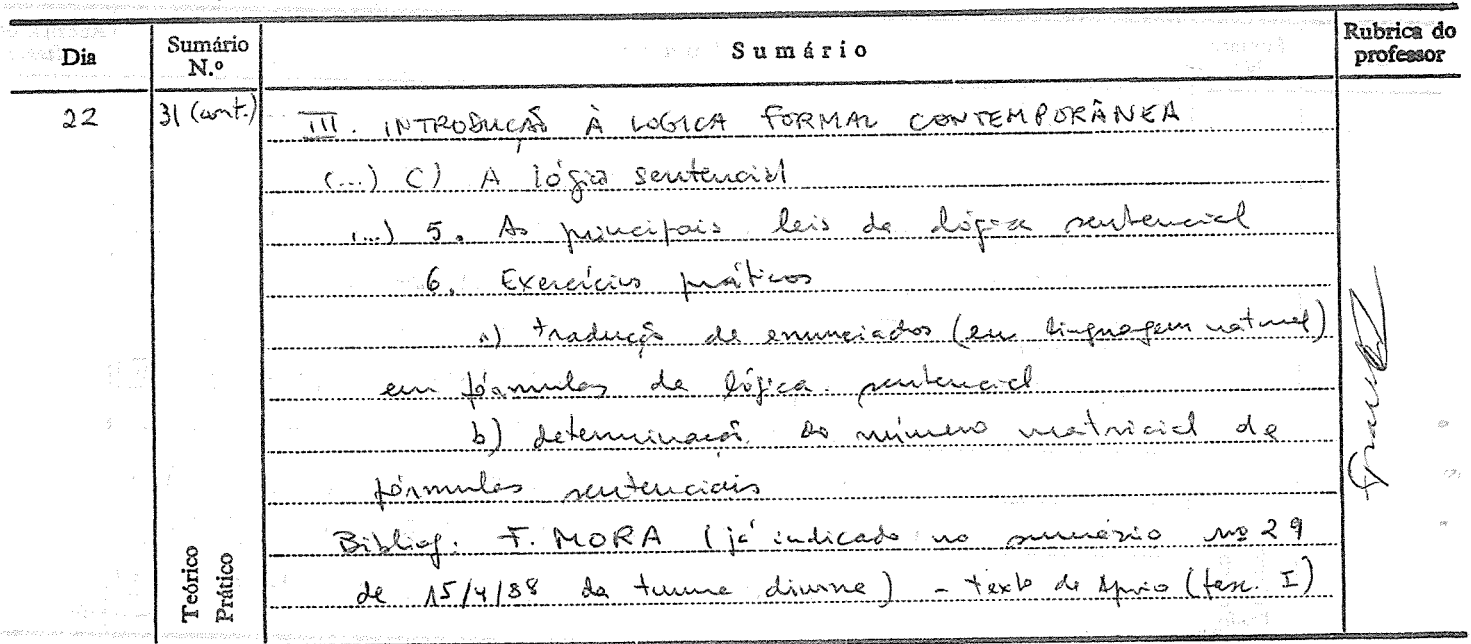 Dia
Sumário N.º
Sumário
Rubrica do professor
22
31 (cont.)
III. INTRODUÇÃO À LOGICA FORMAL CONTEMPORÂNEA
(...) C) A lógica sentencial
(...) 5. As principais leis da lógica sentencial
6. Exercícios práticos
a) tradução de enunciados (em linguagem natural)
em fórmulas da lógica sentencial
b) determinação do número matricial de
fórmulas sentenciais
Bibliog. F. MORA (já indicado no sumário nº 29
de 15/4/88 da turma diurna) - texto de Apoio (fasc. I)
Teórico
Prático